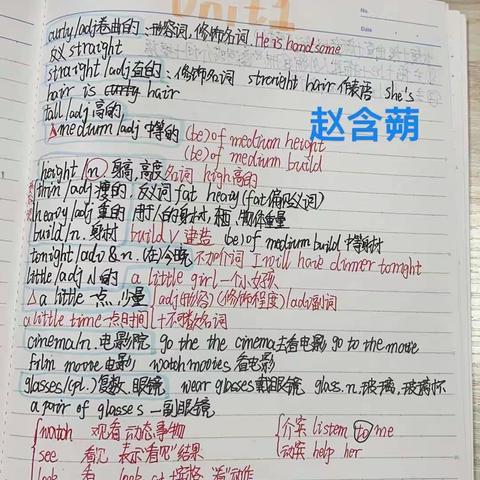 Part 1
No.
Date
curly/adj卷曲的:形容词,修饰名词 He is handsome
反义 straight
straight/adj直的:修饰名词 straight hair 作表语 she's
hair is curly hair
tall/adj高的,
medium/adj中等的 (be)of medium height
(be) of medium build
赵含蒴
height/n.身高,高度 名词 high高的
thin/adj瘦的 反义词 fat heavy (fat偏贬义词)
heavy/adj重的 用于人的身材,物体重量
build/n.身材 build V 建造 be)of medium build 中等身材
tonight/adv&n.(在)今晚 不加介词 I will have dinner tonight
little/adj小的 a little girl一个小女孩
△a little 一点,少量 adj(形容)(修饰程度)/adv副词
a little time一点时间 +不可数名词
cinema/n.电影院 go the the cinema去看电影 go to the movie
film movie电影, watch movies 看电影
glasses/(pl.)复数.眼镜 wear glasses戴眼镜 glass.n.玻璃,玻璃杯
a pair of glasses 一副眼镜
watch 观看动态事物 介宾 listen to me
see 看见 表示"看见"结果 动宾 help her
look 看 look at+宾格 "看"动作